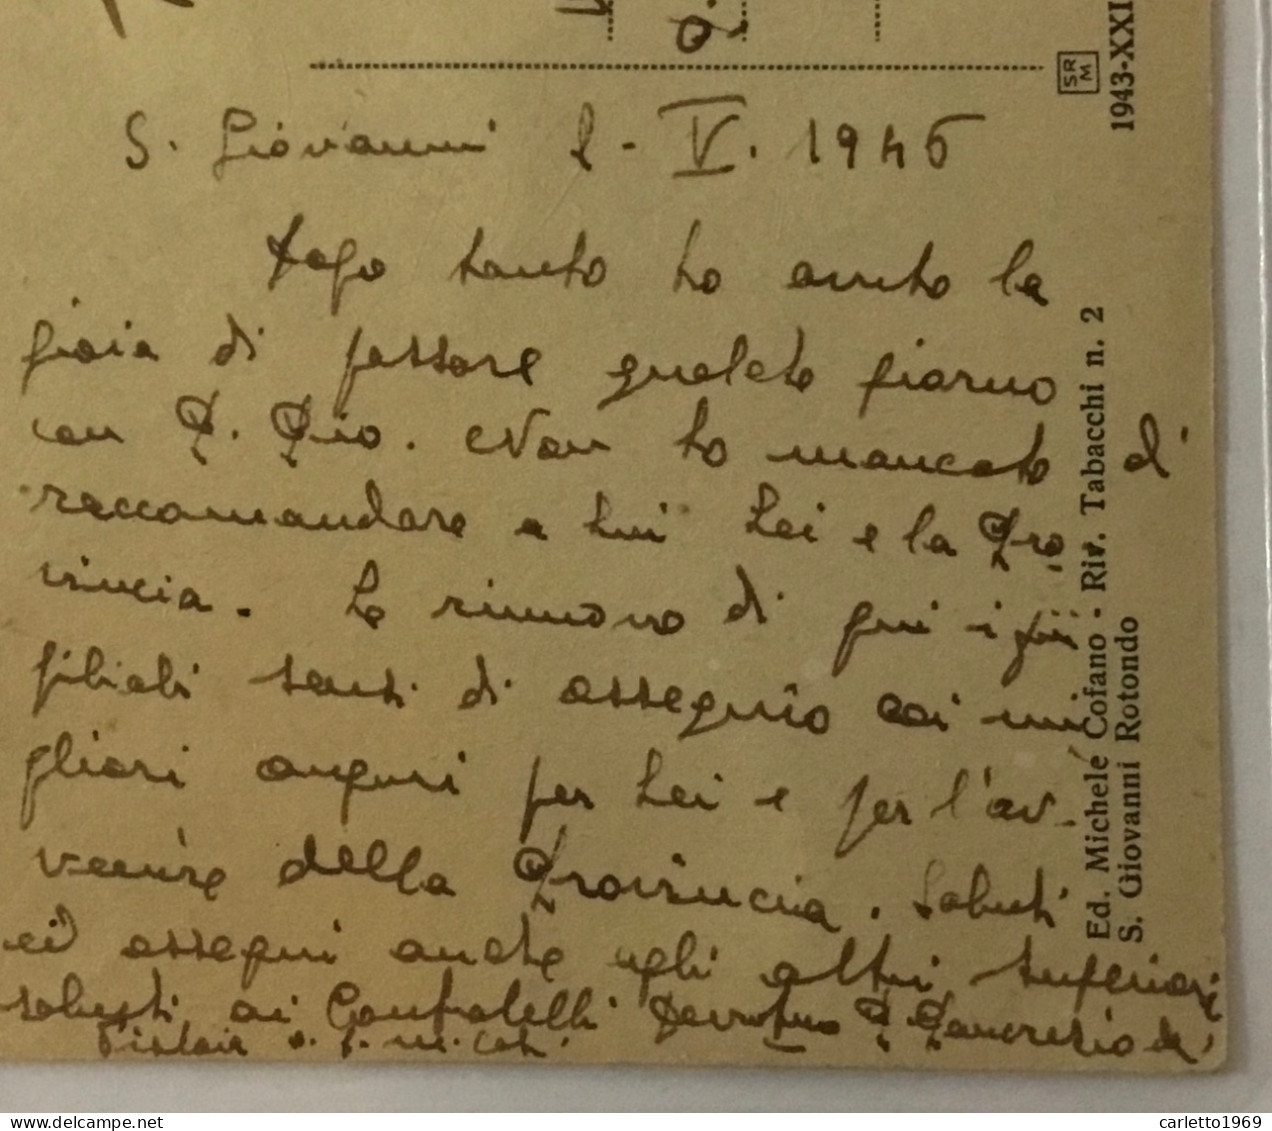 S. Giovanni 2 - V. 1946
Dopo tanto ho avuto la
gioia di passare qualche giorno
con P. Pio. Non ho mancato di
raccomandare a Lui Lei e la Pro
vincia. Le rinnovo di qui i più
filiali sensi di ossequio coi mi
gliori auguri per Lei e per l'av-
venire della Provincia. Saluti
ed ossequi anche agli altri superiori
saluti ai Confratelli Devot.mo P. da
1943-XXI
SRM
Ed. Michele Cofano - Riv. Tabacchi n. 2
S. Giovanni Rotondo
delcampe.net
carletto1969